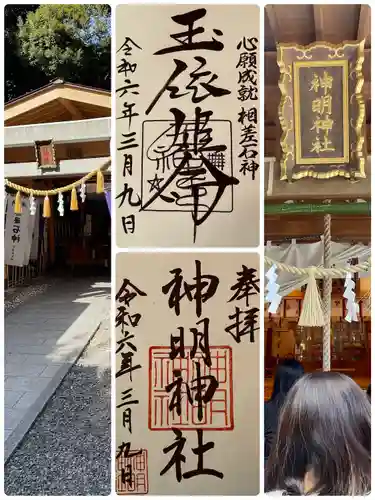 心願成就 相差石神
玉依姫命
令和六年三月九日
神明神社
奉拝
神明神社
令和六年三月九日